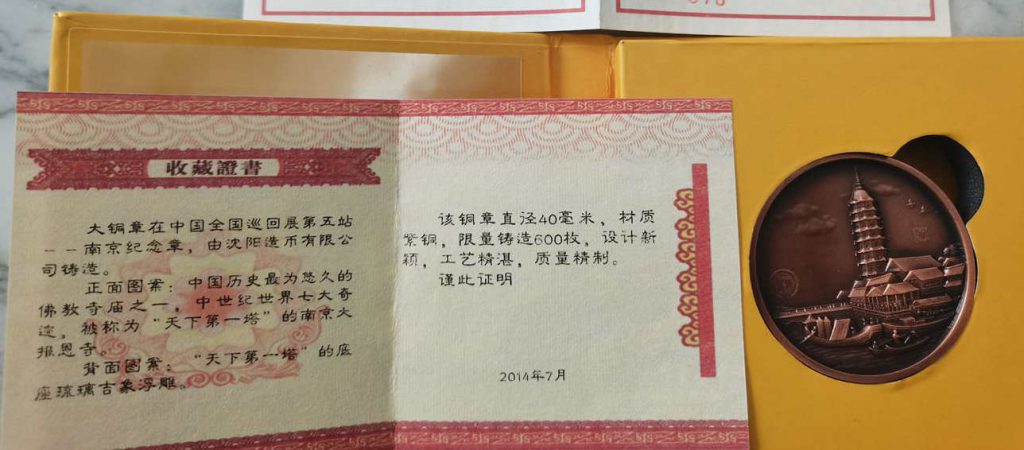 收藏證書
大铜章在中国全国巡回展第五站
——南京纪念章，由沈阳造币有限公
司铸造。
正面图案：中国历史最为悠久的
佛教寺庙之一，中世纪世界七大奇
迹，被称为“天下第一塔”的南京大
报恩寺。
背面图案：“天下第一塔”的底
座琉璃古象浮雕。
该铜章直径40毫米，材质
紫铜，限量铸造600枚，设计新
颖，工艺精湛，质量精制。
谨此证明
2014年7月